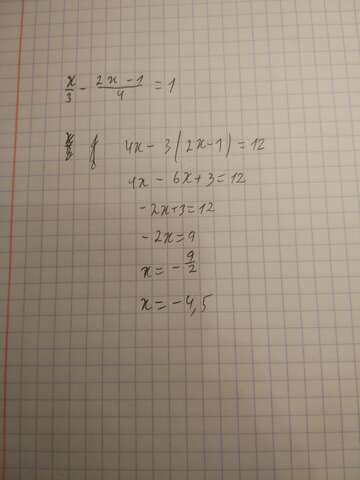 x/3 - (2x - 1)/4 = 1
4x - 3(2x-1) = 12
4x - 6x + 3 = 12
-2x+3 = 12
-2x = 9
x = -9/2
x = -4,5